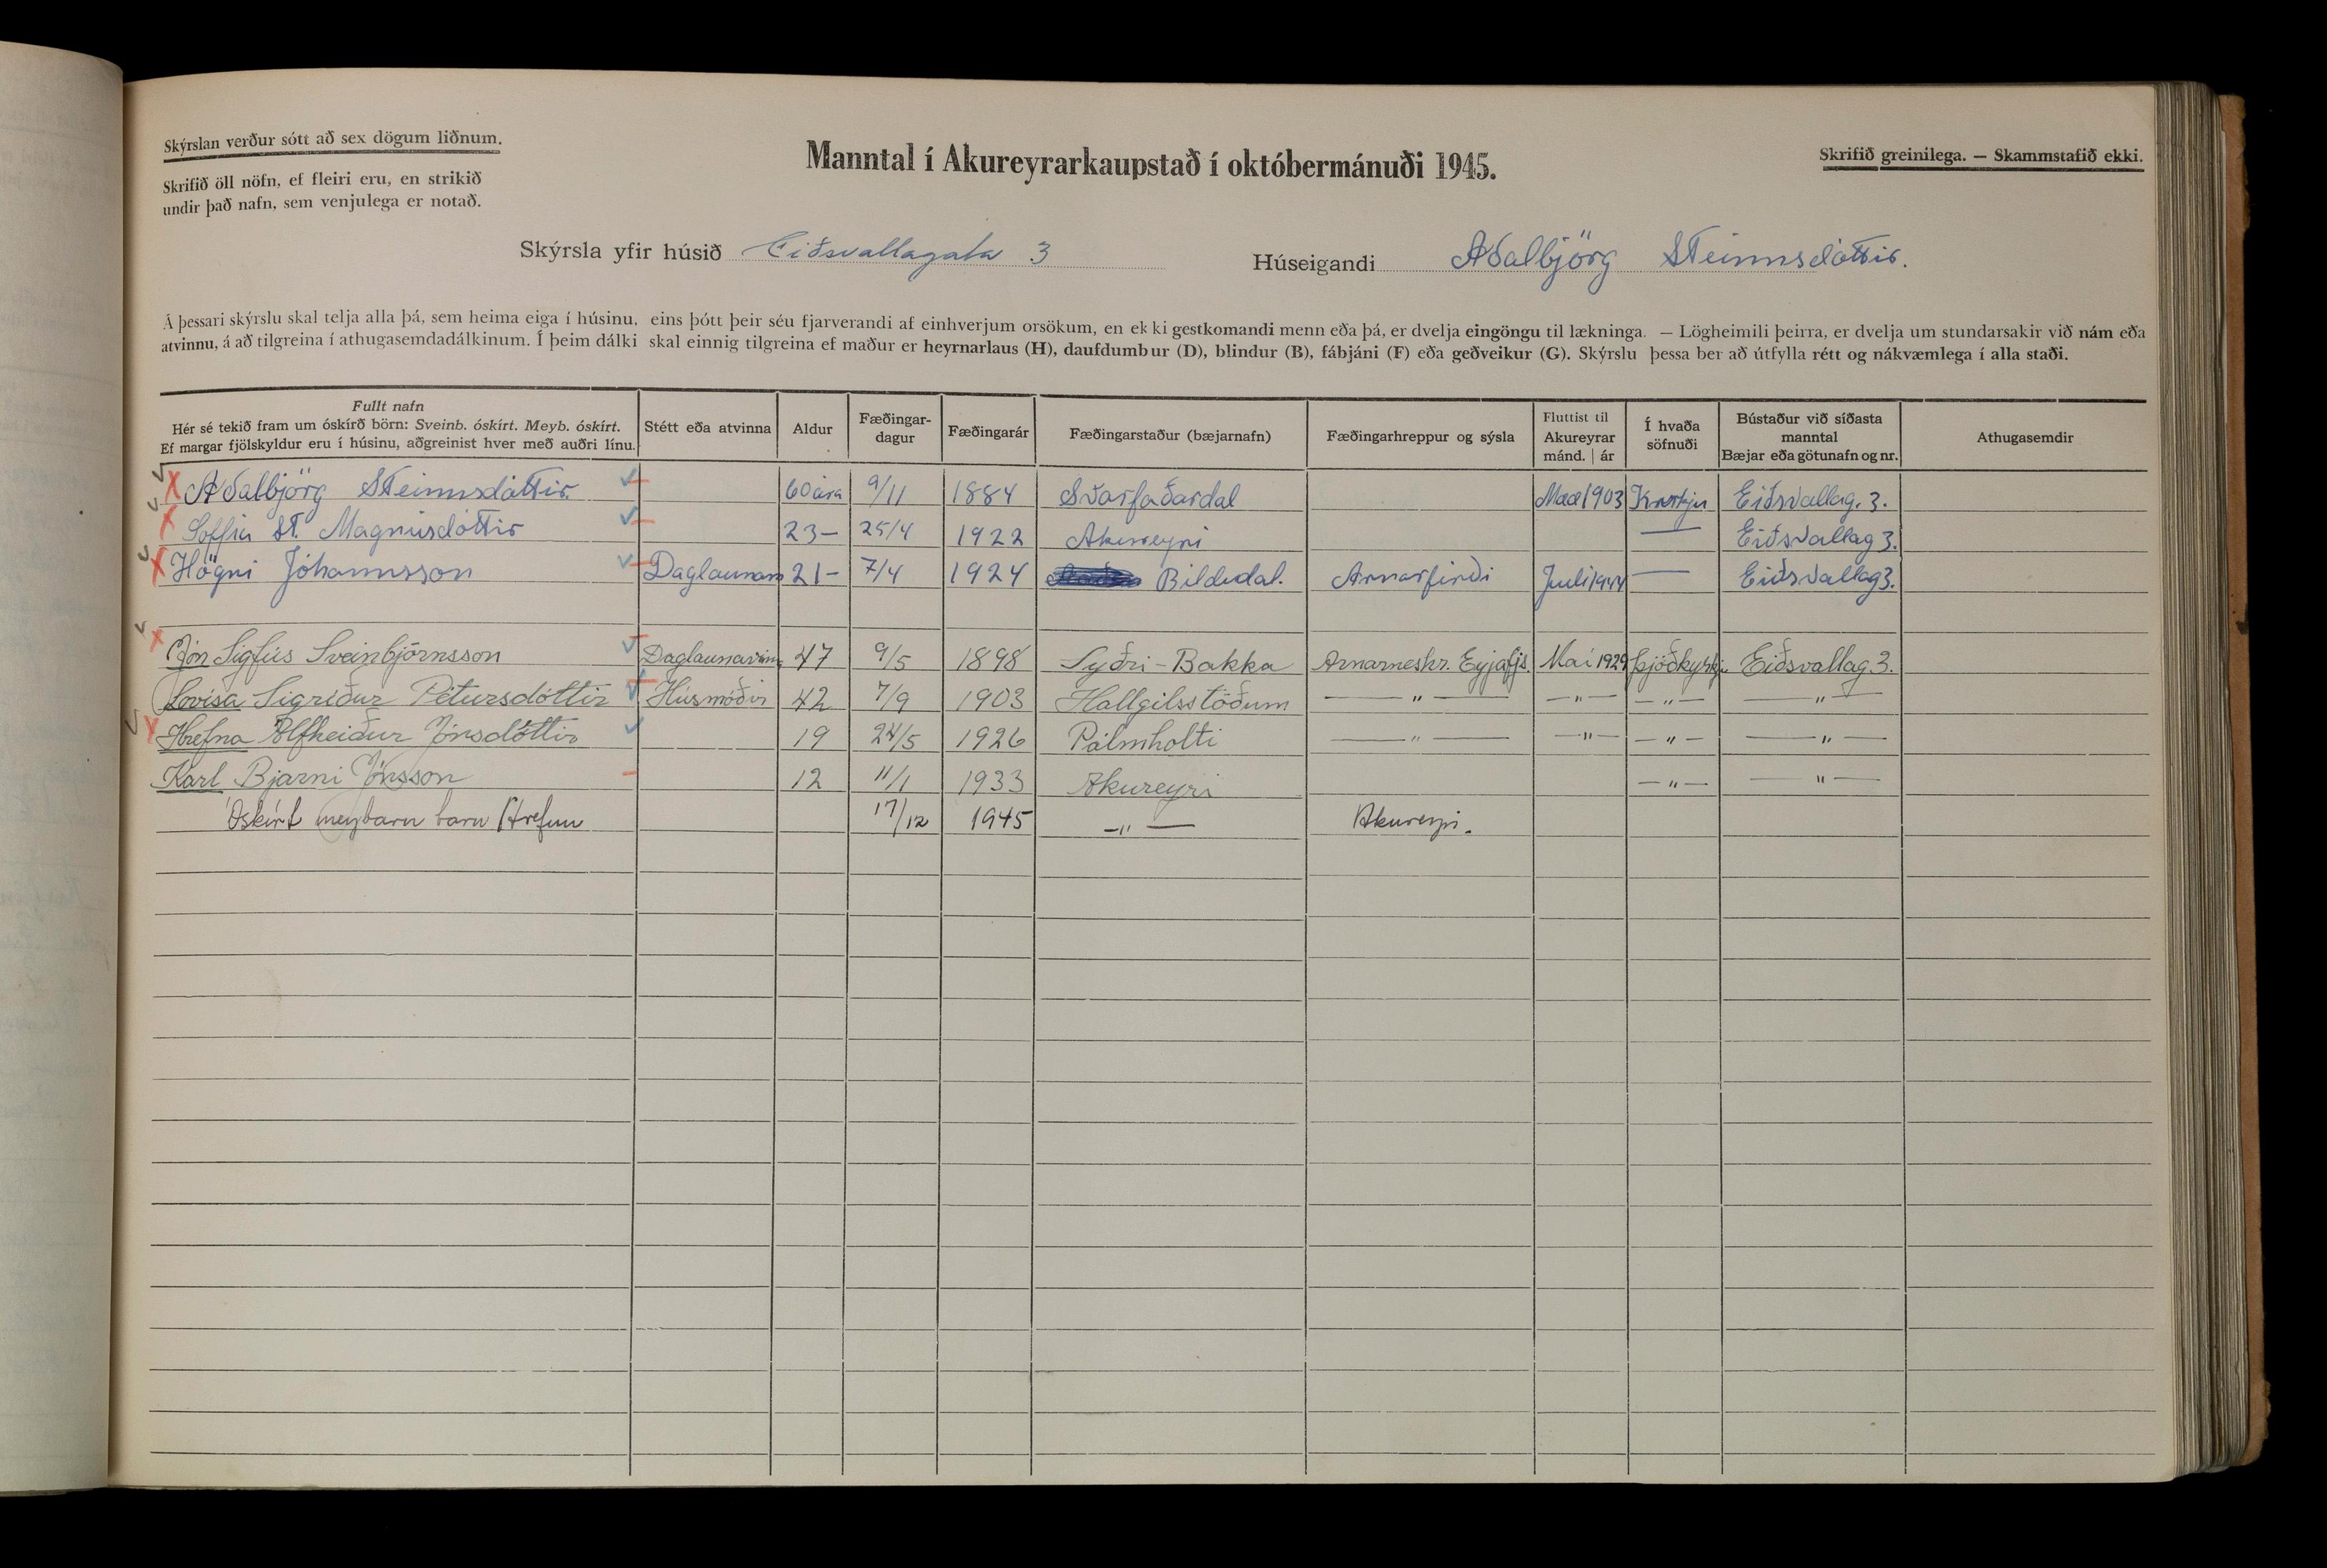 Skýrslan verður sótt að sex dögum liðnum.
Skrifið öll nöfn, ef fleiri eru, en strikið
undir það nafn, sem venjulega er notað.
Manntal í Akureyrarkaupstað í októbermánuði 1945.
Skrifið greinilega. — Skammstafið ekki.
Skýrsla yfir húsið Eiðsvallagata 3
Húseigandi Aðalbjörg Steinnsdóttir.
Á þessari skýrslu skal telja alla þá, sem heima eiga í húsinu, eins þótt þeir séu fjarverandi af einhverjum orsökum, en ekki gestkomandi menn eða þá, er dvelja eingöngu til lækninga. — Lögheimili þeirra, er dvelja um stundarsakir við nám eða
atvinnu, á að tilgreina í athugasemdadálkinum. Í þeim dálki skal einnig tilgreina ef maður er heyrnarlaus (H), daufdumbur (D), blindur (B), fábjáni (F) eða geðveikur (G). Skýrslu þessa ber að útfylla rétt og nákvæmlega í alla staði.
Fullt nafn
Hér sé tekið fram um óskírð börn: Sveinb. óskírt. Meyb. óskírt.
Ef margar fjölskyldur eru í húsinu, aðgreinist hver með auðri línu.
Stétt eða atvinna
Aldur
Fæðingar-
dagur
Fæðingarár
Fæðingarstaður (bæjarnafn)
Fæðingarhreppur og sýsla
Fluttist til
Akureyrar
mánd. | ár
Í hvaða
söfnuði
Bústaður við síðasta
manntal
Bæjar eða götunafn og nr.
Athugasemdir
Aðalbjörg Steinnsdóttir 60 ára 9/11 1884 Svarfaðardal 1903 Eiðsvallag. 3.
Soffía St. Magnúsdóttir 23 — 25/4 1922 Akureyri — Eiðsvallag 3.
Högni Jóhannsson Daglaunam 21 — 7/4 1924 Bíldudal. Arnarfirði Júlí 1944 — Eiðsvallag 3.
Jón Sigfús Sveinbjörnsson Daglaunavinn 47 9/5 1898 Syðri-Bakka Arnarneshr. Eyjafjs. Maí 1929 Þjóðkyrkju Eiðsvallag. 3.
Lovísa Sigríður Pétursdóttir Húsmóðir 42 7/9 1903 Hallgilsstöðum — " — — " — — " — — " —
Hrefna Álfheiður Jónsdóttir 19 24/5 1926 Pálmholti — " — — " — — " — — " —
Karl Bjarni Jónsson 12 11/1 1933 Akureyri — " — — " —
Óskírt meybarn barn Hrefnu 17/12 1945 — " — Akureyri.